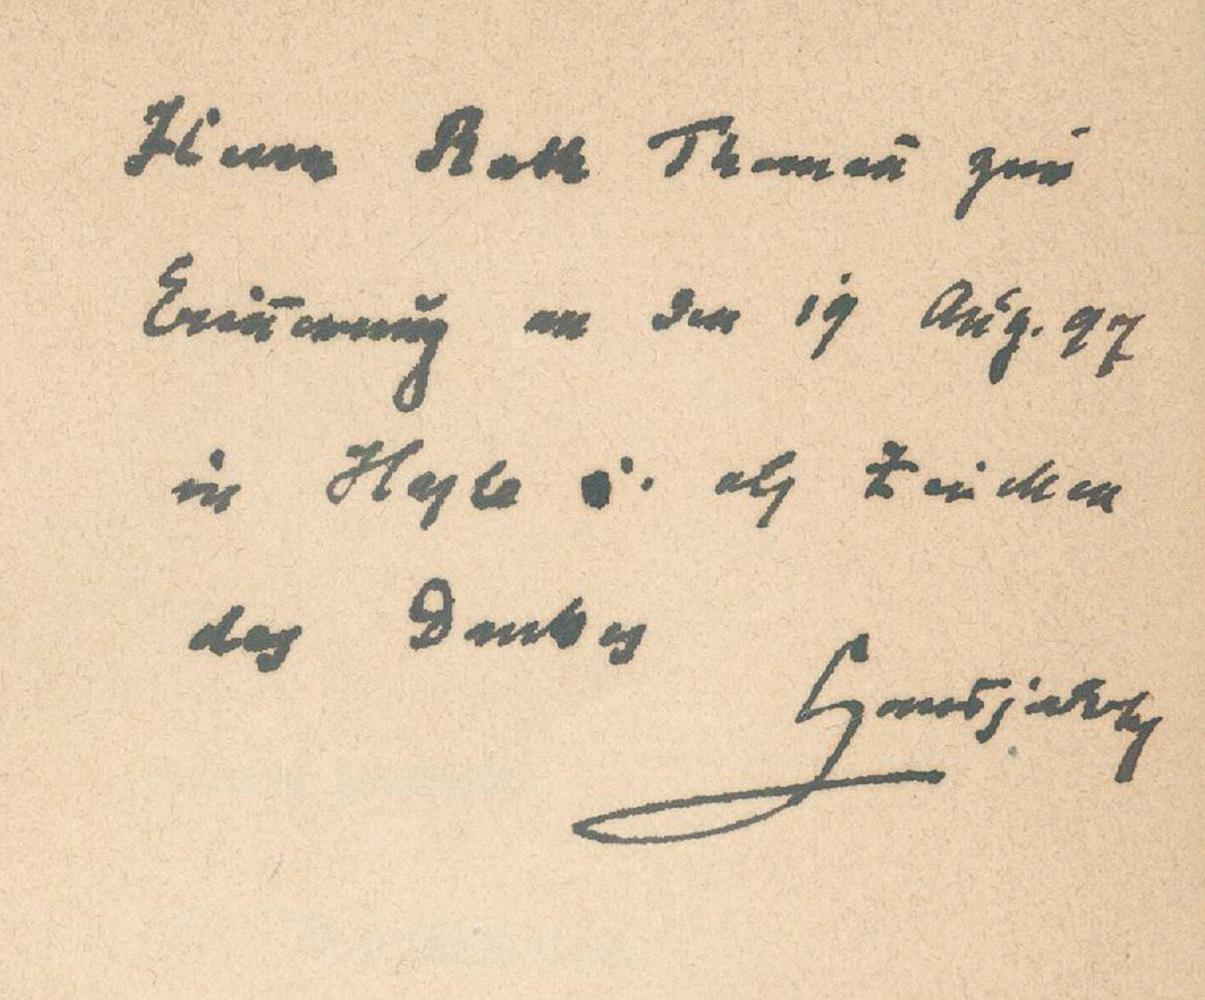 Herrn Rath Thoman̄ zur
Erin̄erung an den 19 Aug. 97
in Hasle u. als Zeichen
des Dankes
Hansjakob